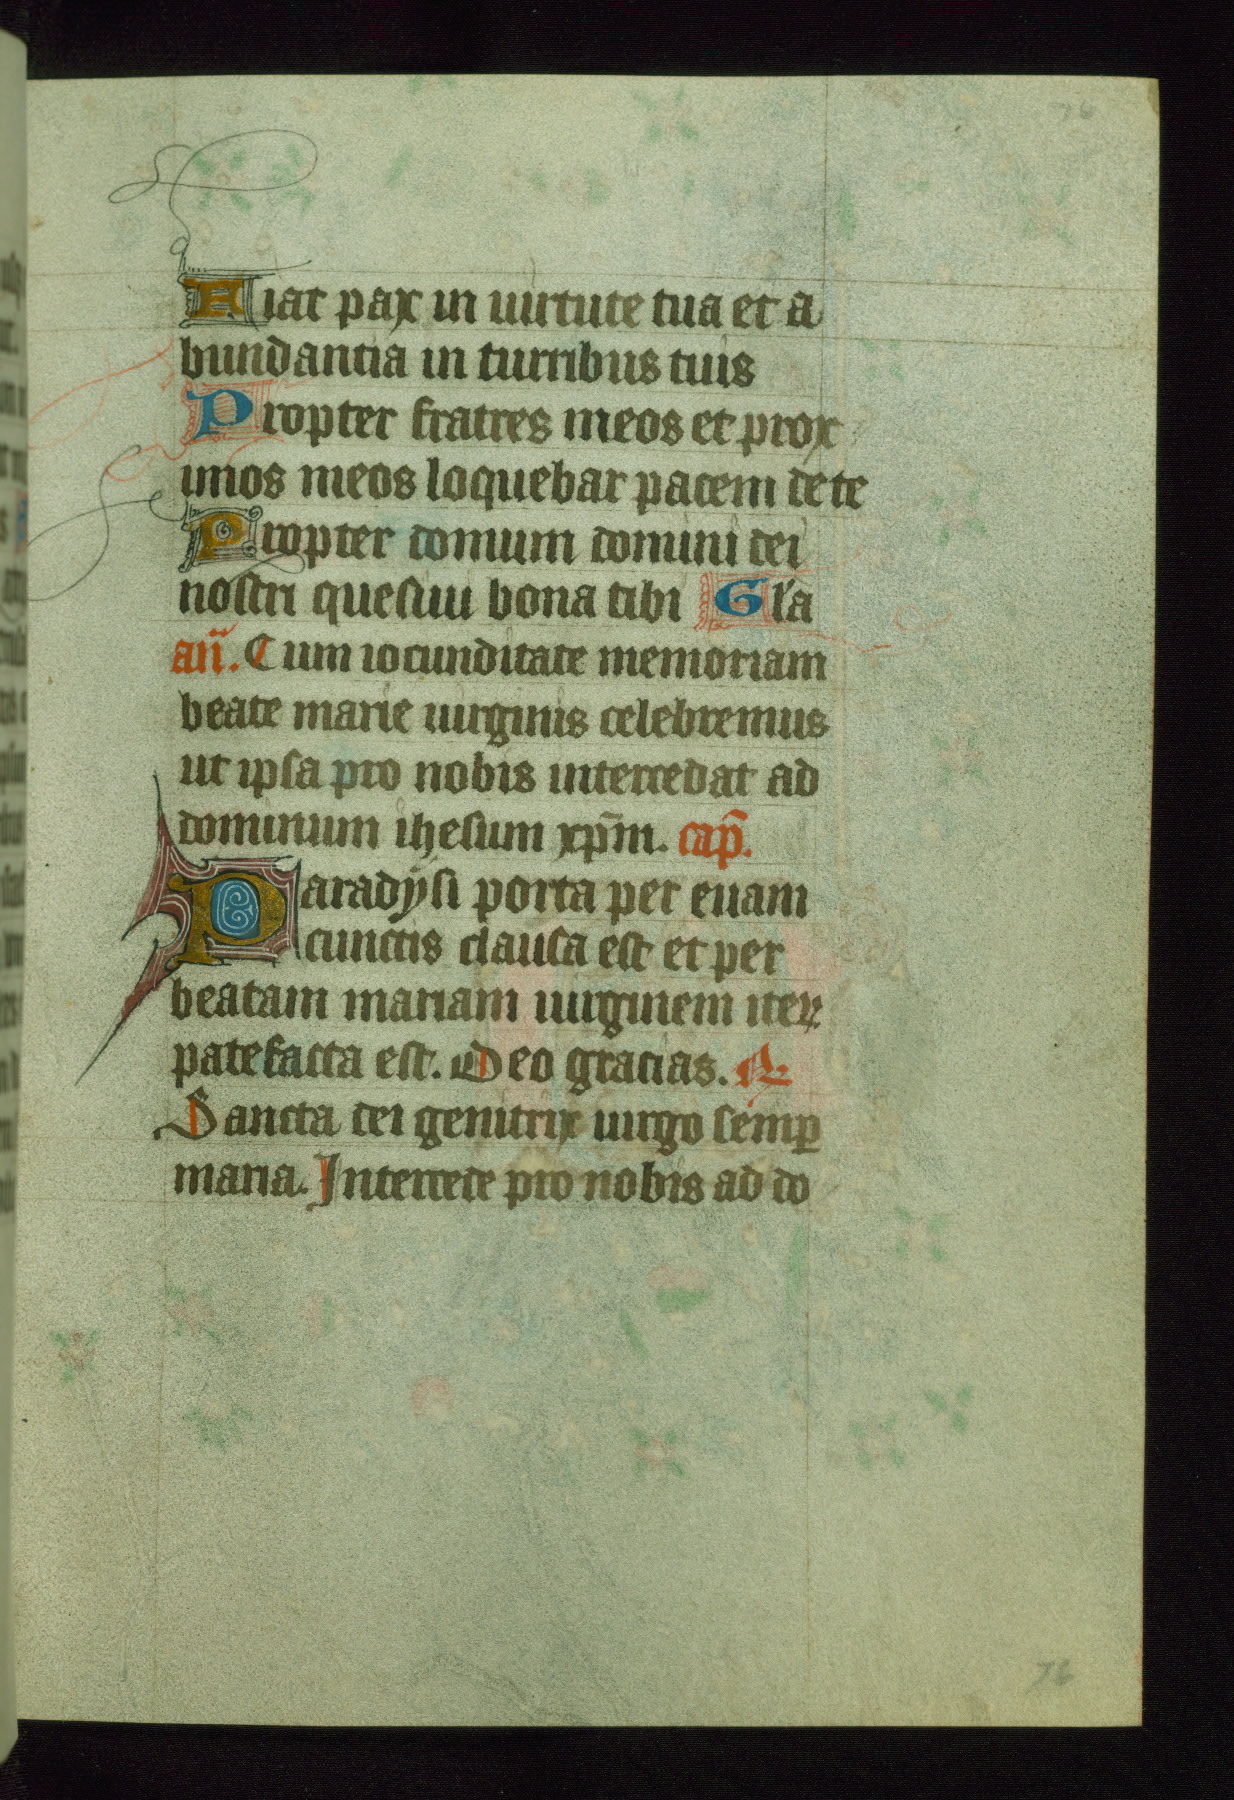 76
Fiat pax in uirtute tua et a
bundantia in turribus tuis
Propter fratres meos et prox
imos meos loquebar pacem de te
Propter domum domini dei
nostri quesiui bona tibi Gl'a
an̄. Cum iocunditate memoriam
beate marie uirginis celebremus
ut ipsa pro nobis intercedat ad
dominum ihesum xp̄m. cap̄.
Paradÿsi porta per euam
cunctis clausa est et per
beatam mariam uirginem iteꝝ
patefacta est. Deo gracias. ℟
Sancta dei genitrix uirgo semꝑ
maria. Intercede pro nobis ad do
76